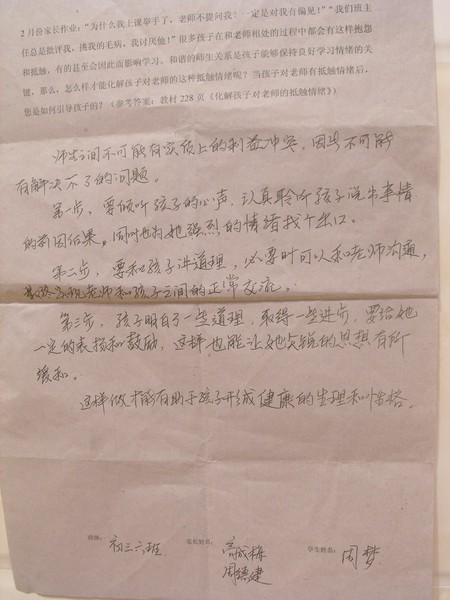 2 月份家长作业：“为什么我上课举手了，老师不提问我？一定是对我有偏见！”“我们班主
任总是批评我，挑我的毛病，我讨厌他！”很多孩子在和老师相处的过程中都会有这样抱怨
和抵触，有的甚至会因此而影响学习。和谐的师生关系是孩子能够保持良好学习情绪的关
键，那么，怎么样才能化解孩子对老师的这种抵触情绪呢？当孩子对老师有抵触情绪后，
您是如何引导孩子的？（参考答案：教材 228 页《化解孩子对老师的抵触情绪》）
师生之间不可能有实质上的利益冲突，因此不可能
有解决不了的问题。
第一步，要倾听孩子的心声，认真聆听孩子说出事情
的前因后果。同时也为她强烈的情绪找个出口。
第二步，要和孩子讲道理，必要时可以和老师沟通，
实现老师和孩子之间的正常交流。
第三步，孩子明白了一些道理，取得一些进步，要给她
一定的表扬和鼓励，这样也能让她尖锐的思想有所
缓和。
这样做才能有助于孩子形成健康的生理和性格。
班级： 初三六班 家长姓名： 周德建 学生姓名： 周梦